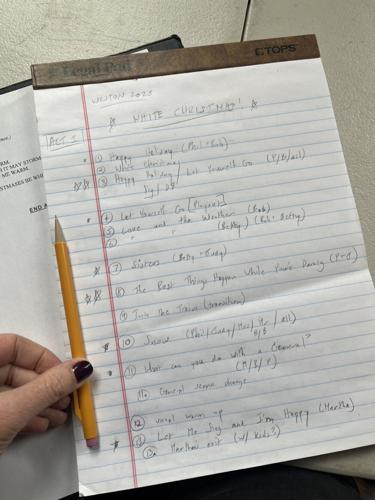 Legal Pad
TOPS
WESTON 2025
☆ WHITE CHRISTMAS! ☆
ACT I
① Happy Holiday (Phil + Bob)
② White Christmas
③ Happy Holiday / Let Yourself Go (P/B/all)
④ Let Yourself Go [Playout]
⑤ Love and the Weather (Bob)
⑥ " " (Betty) (Bob + Betty)
⑦ Sisters (Betty + Judy)
⑧ The Best Things Happen While You're Dancing (P+J)
⑨ Into the Train (transition)
⑩ Snow (Phil/Judy/ /all)
⑪ What can you do with a General?
(M/B/P)
11a General scene change
⑫ vocal warm up
⑬ Let Me Sing and I'm Happy (Martha)
13a Martha's exit (w/ kids?)
RM.
IT MAY STORM
ME WARM.
STMASES BE WHI
END A